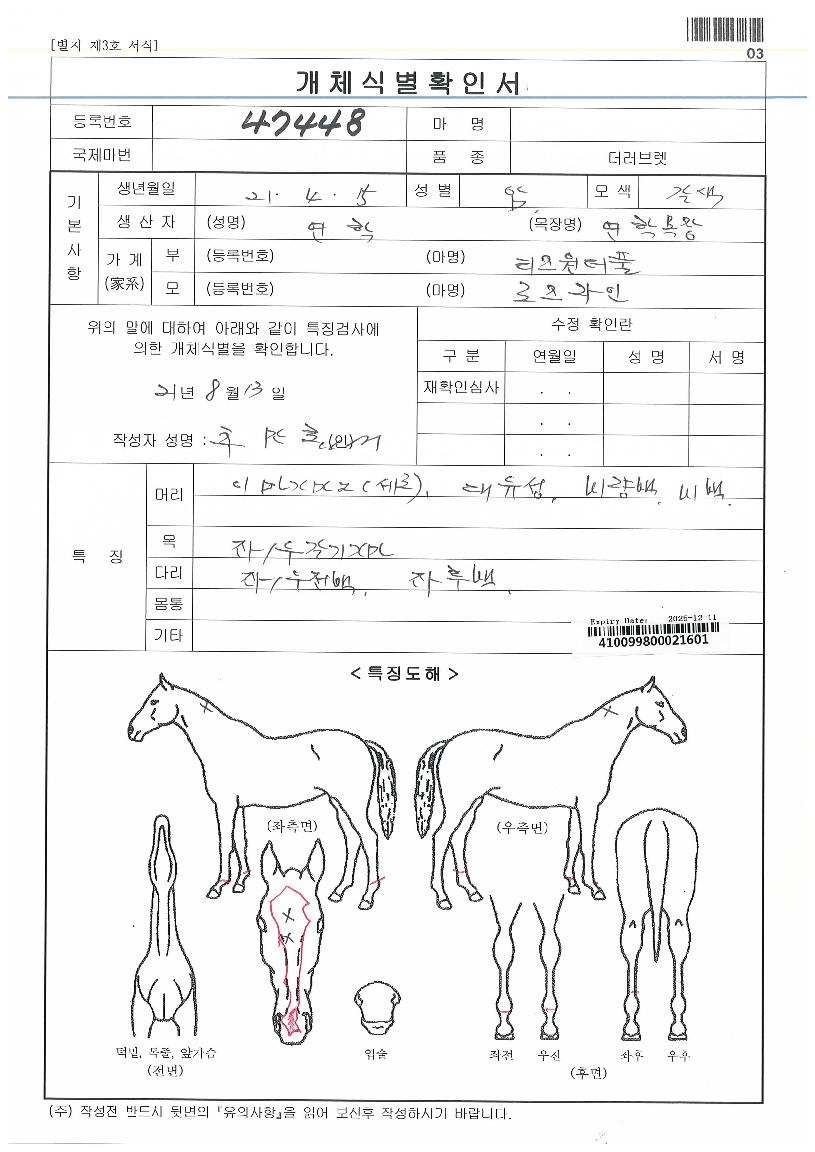 [별지 제3호 서식]
03
개체식별확인서
등록번호 47448 마 명
국제마번 품 종 더러브렛
기본사항
생년월일 21. 4. 15 성 별 암 모 색 갈색
생 산 자 (성명) 연 학 (목장명) 연학목장
가 계 (家系) 부 (등록번호) (마명) 티즈원더풀
모 (등록번호) (마명) 로즈라인
위의 말에 대하여 아래와 같이 특징검사에
의한 개체식별을 확인합니다.
21년 8월 13일
작성자 성명 :
수정 확인란
구 분 연월일 성 명 서 명
재확인심사 . .
. .
. .
특 징
머리 이마 (세로), 대유성, 비량백, 비백.
목 좌/우
다리 좌/우전백, 좌후백.
몸통
기타
Expiry Date: 2026-12-11
410099800021601
< 특징도해 >
(좌측면) (우측면)
턱밑, 목줄, 앞가슴
(전면)
입술
좌전 우전 좌후 우후
(후면)
(주) 작성전 반드시 뒷면의 『유의사항』을 읽어 보신후 작성하시기 바랍니다.